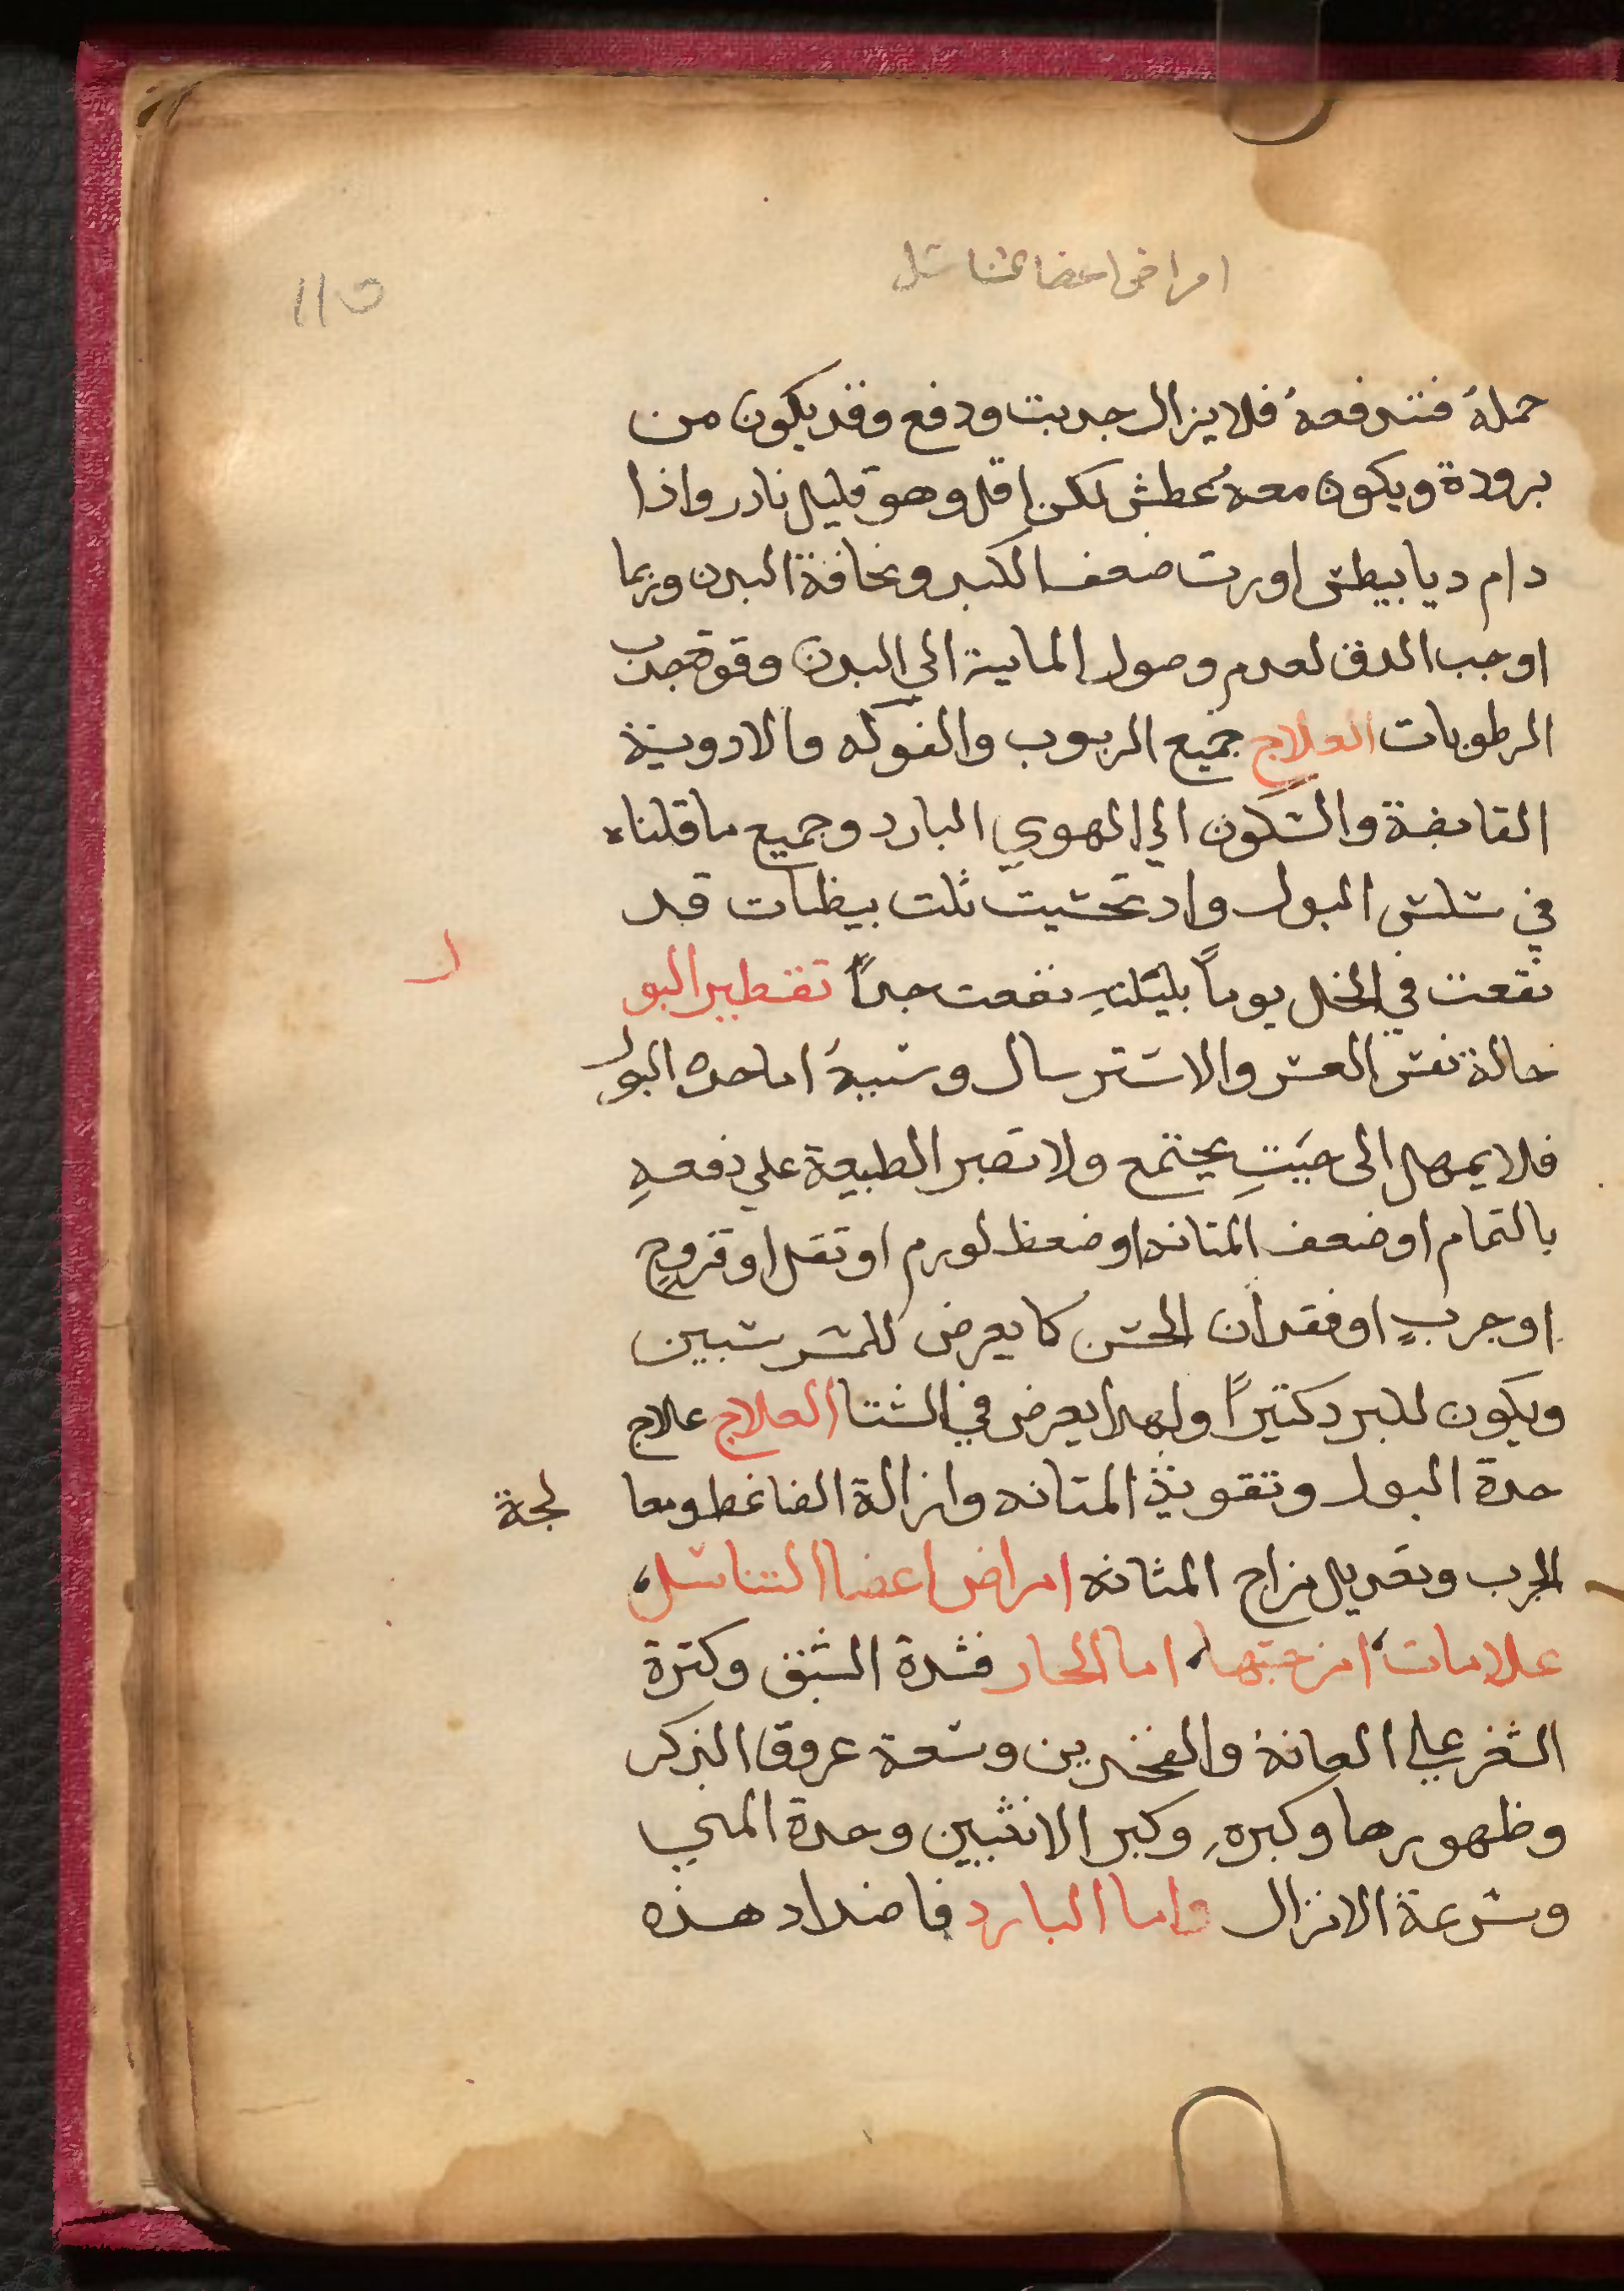 امراض اعضا التناسل
١١٥
حملهُ فتدفعهُ فلا يزال جدبت ودفع وقد يكون من
برودة ويكون معهُ عطش لكن اقل وهو قليل نادر واذا
دام ديابيطس اورت ضعف الكبد ونحافة البدن وربما
اوجب الدق لعدم وصول الماىية الي البدن وقوة جدب
الرطوبات العلاج جميع الربوب والفوكه والادوية
القابضة والسكون الي الهوي البارد وجميع ما قلناه
في سلس البول واد تحسيت ثلت بيظات قد
نقعت في الخل يوماً بليلته نفعت جداً تقطير البو ل
حالة بين العسر والاسترسال وسببهُ اما حده البول
فلا يمهل الى حيت يجتمع ولا تصبر الطبيعة علي دفعهِ
بالتمام او ضعف المتانه او ضعظ لورم او تقل او قروحٍ
او جربٍ او فقدان الحس كما يعرض للمسرسبين
ويكون للبرد كتيراً ولهدا يعرض في الشتا العلاج علاج
حدة البول وتقوية المتانه وازالة الضاغط ومعا لجة
الجرب وتعديل مزاج المثانه امراض اعضا التناسل
علامات امزجتها اما الحار فشدة الشبق وكترة
الشعر علي العانة والفخدين وسعة عروق الذكر
وظهورها وكبره وكبر الانثيين وحدة المني
وسرعة الانزال واما البارد فاضداد هذه